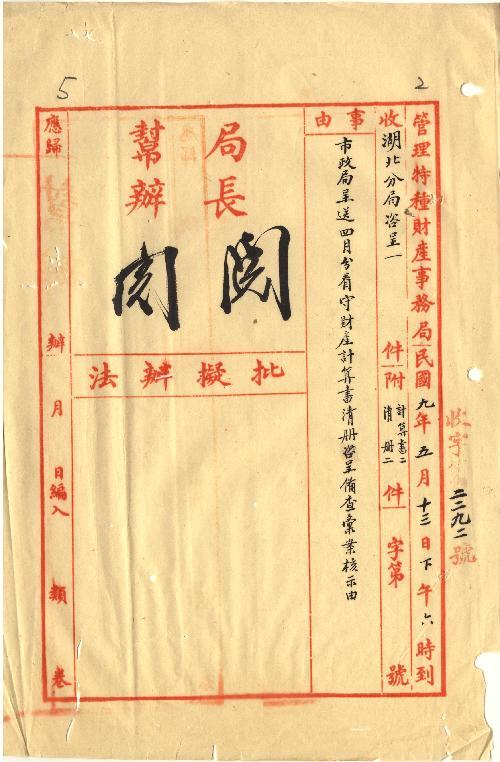 2
5
收字第二二九二號
管理特種財產事務局民國九年五月十三日下午六時到
收湖北分局咨呈一件附計算書二清冊二件字第號
事由
市政局呈送四月分看守財產計算書清册咨呈備查彙業核示由
局長 閱
幫辦 閱
批擬辦法
應歸辦月日編入類卷